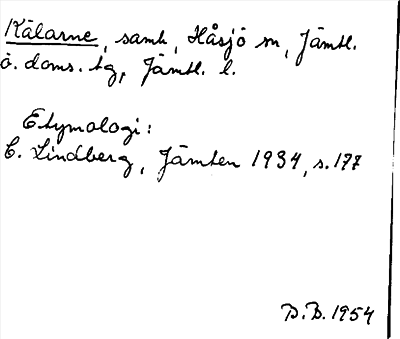 Kälarne, samh, Håsjö sn, Jämtl.
ö. doms. tg, Jämtl. l.
Etymologi:
C. Lindberg, Jämten 1934, s. 177
D.B. 1954